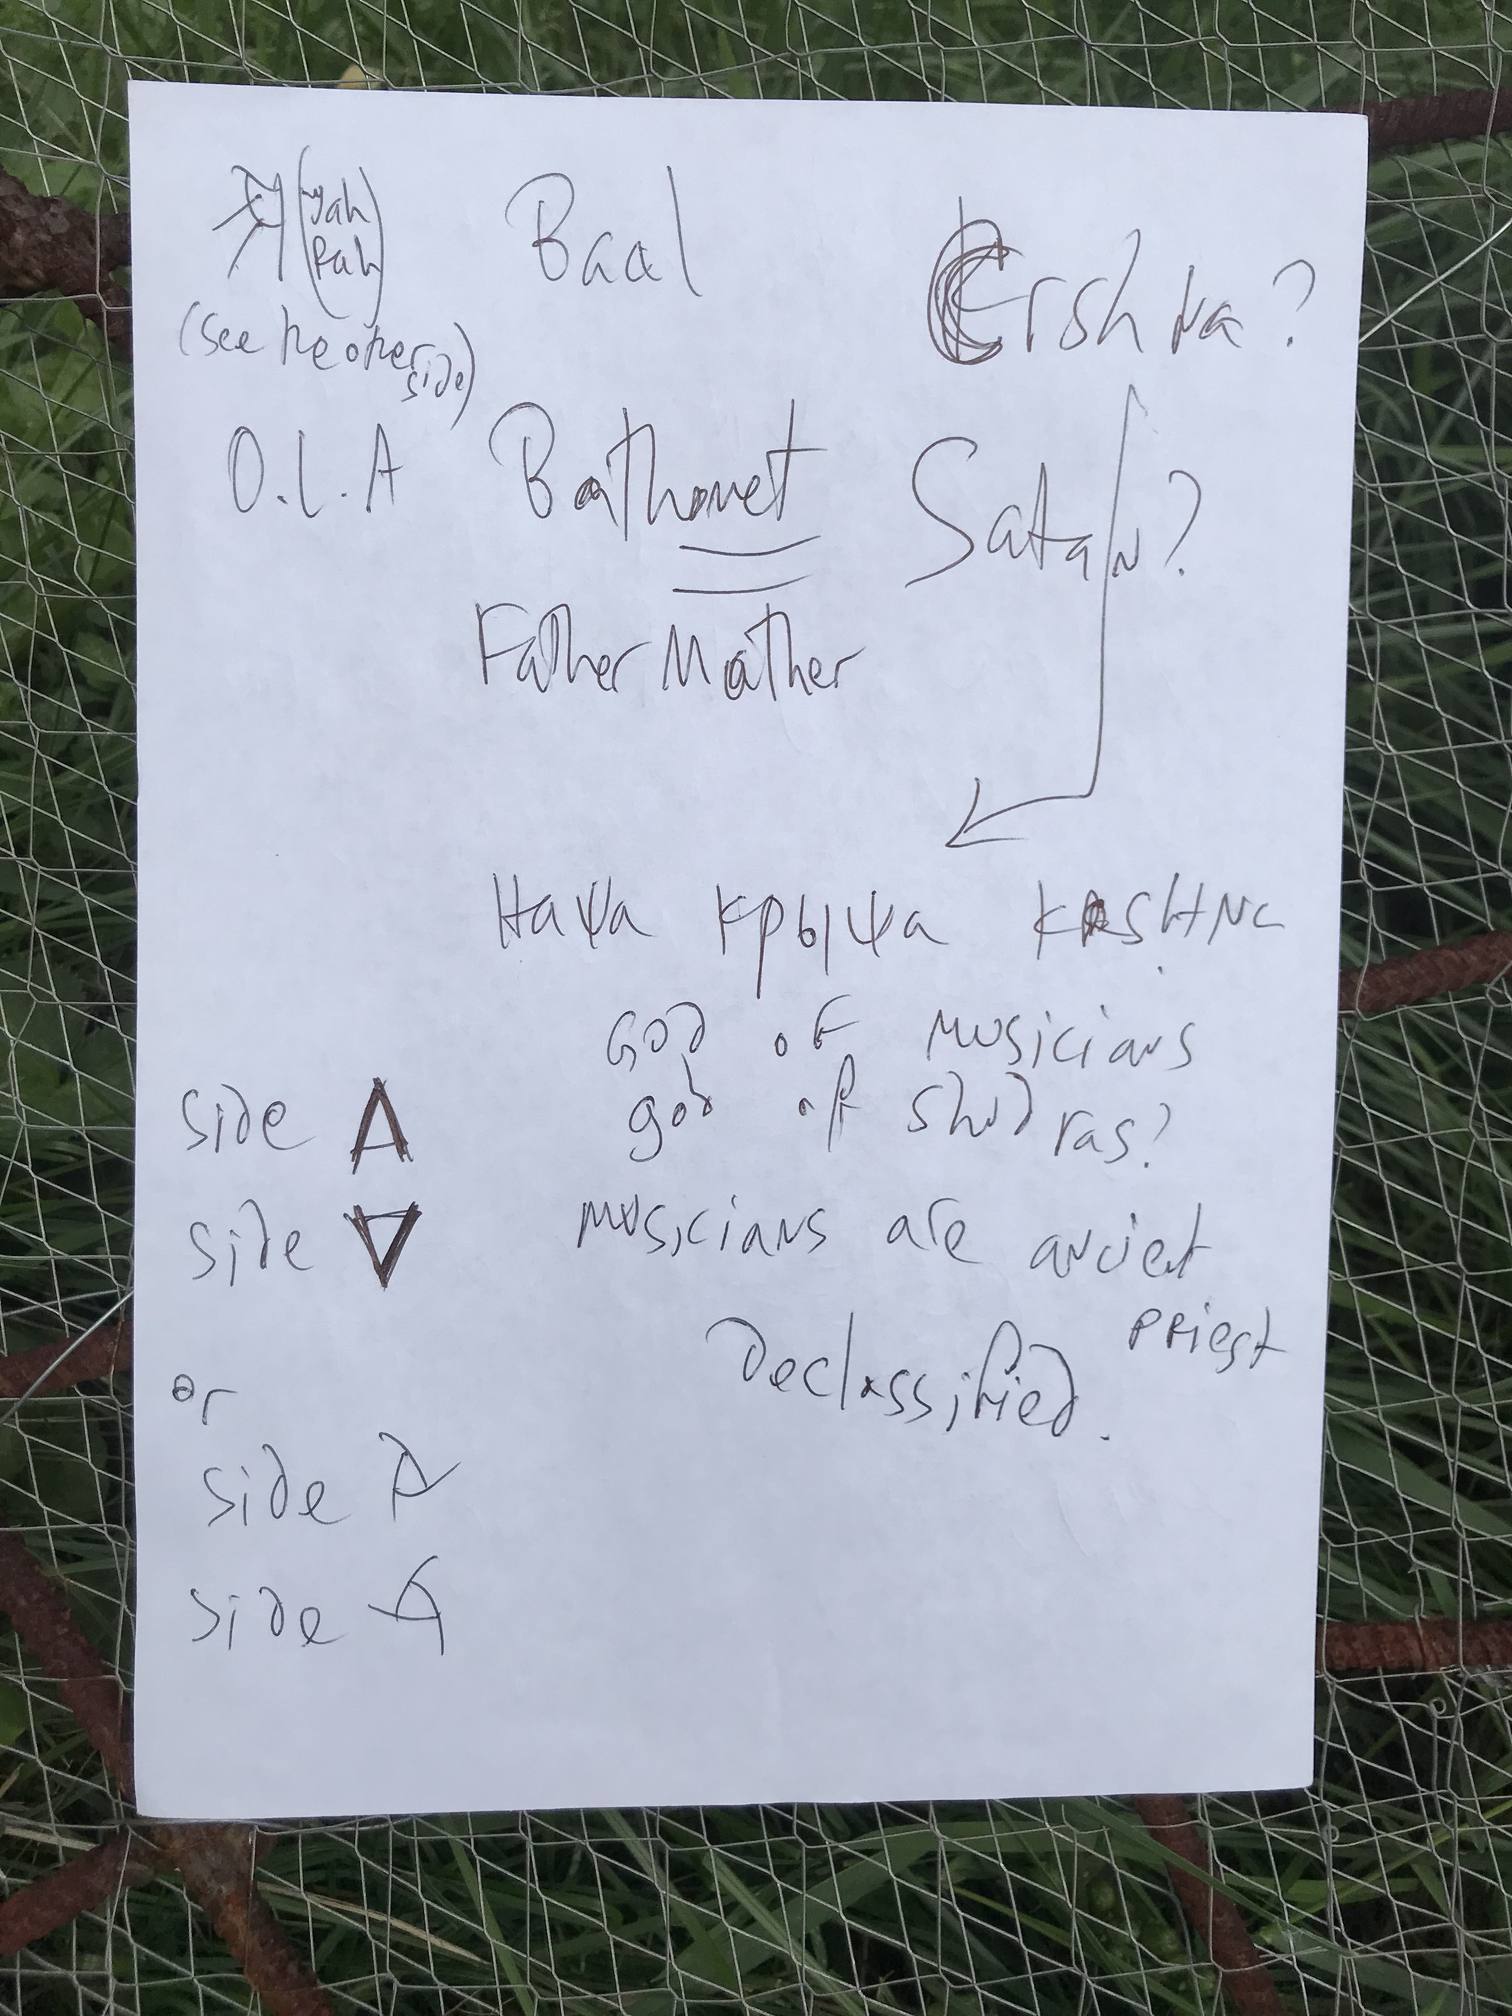 (yah
Pah)
(see the other side)
Baal
Krshna?
O.L.A
Bathomet
Satan?
Father Mather
Наша крыша KRSHNA
GOD of musicians
god of shudras?
musicians are anciet priest
Declassified.
side A
side ∀
or
side A
side